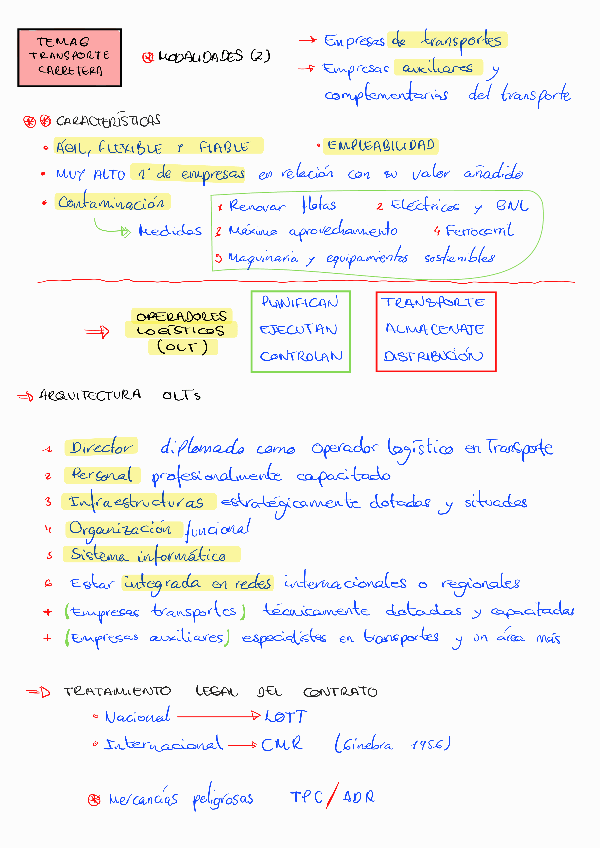 TEMA6
TRANSPORTE
CARRETERA
⊛ MODALIDADES (2)
→ Empresas de transportes
→ Empresas auxiliares y
complementarias del transporte
⊛⊛ CARACTERÍSTICAS
• ÁGIL, FLEXIBLE Y FIABLE
• EMPLEABILIDAD
• MUY ALTO nº de empresas en relación con su valor añadido
• Contaminación
Medidas
1 Renovar flotas 2 Eléctricos y GNL
2 Máximo aprovechamiento 4 Ferrocarril
5 Maquinaria y equipamientos sostenibles
⇒ OPERADORES
LOGÍSTICOS
(OLT)
PLANIFICAN
EJECUTAN
CONTROLAN
TRANSPORTE
ALMACENAJE
DISTRIBUCIÓN
⇒ ARQUITECTURA OLTs
1 Director diplomado como Operador Logístico en Transporte
2 Personal profesionalmente capacitado
3 Infraestructuras estratégicamente dotadas y situadas
4 Organización funcional
5 Sistema informático
6 Estar integrada en redes internacionales o regionales
+ (Empresas transportes) técnicamente dotadas y capacitadas
+ (Empresas auxiliares) especialistas en transportes y un área más
⇒ TRATAMIENTO LEGAL DEL CONTRATO
• Nacional → LOTT
• Internacional → CMR (Ginebra 1956)
⊛ Mercancías peligrosas TPC/ADR